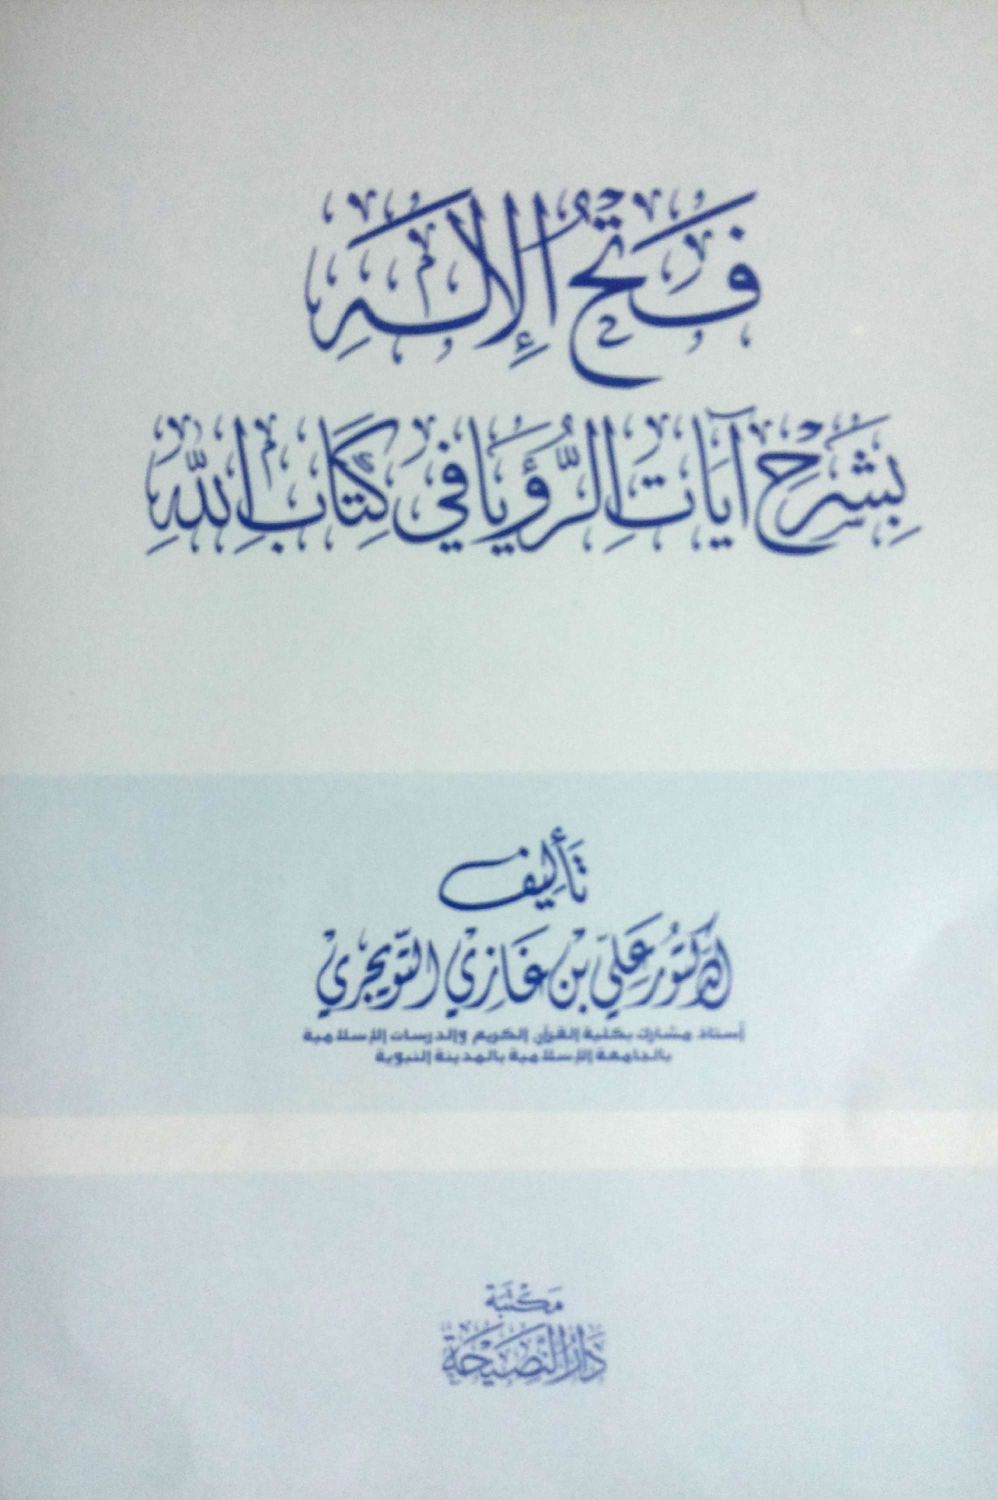 فَتْحُ الْإِلَهِ
بِشَرْحِ آيَاتِ الرُّؤْيَا فِي كِتَابِ اللَّهِ
تَأْلِيف
الدكتور علي بن غازي التويجري
أستاذ مشارك بكلية القرآن الكريم والدرسات الإسلامية
بالجامعة الإسلامية بالمدينة النبوية
مكتبة
دار النصيحة